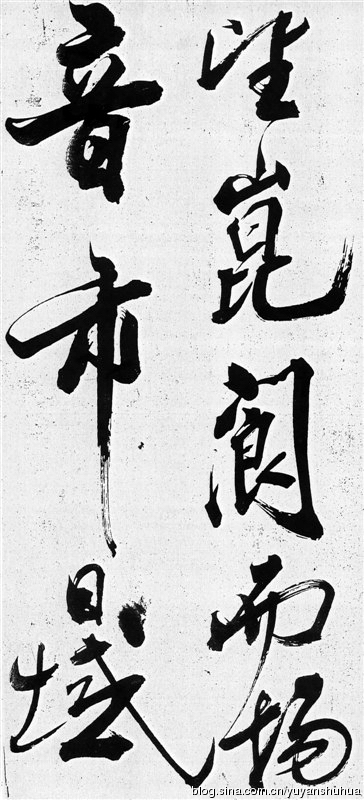 望崑閬而揚
音帀日域
blog.sina.com.cn/yuyanshuhua